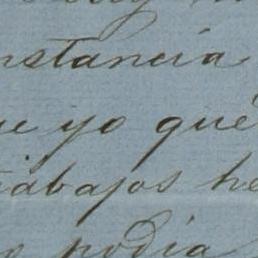 nstancia
ue yo qué
trabajos he
o podia